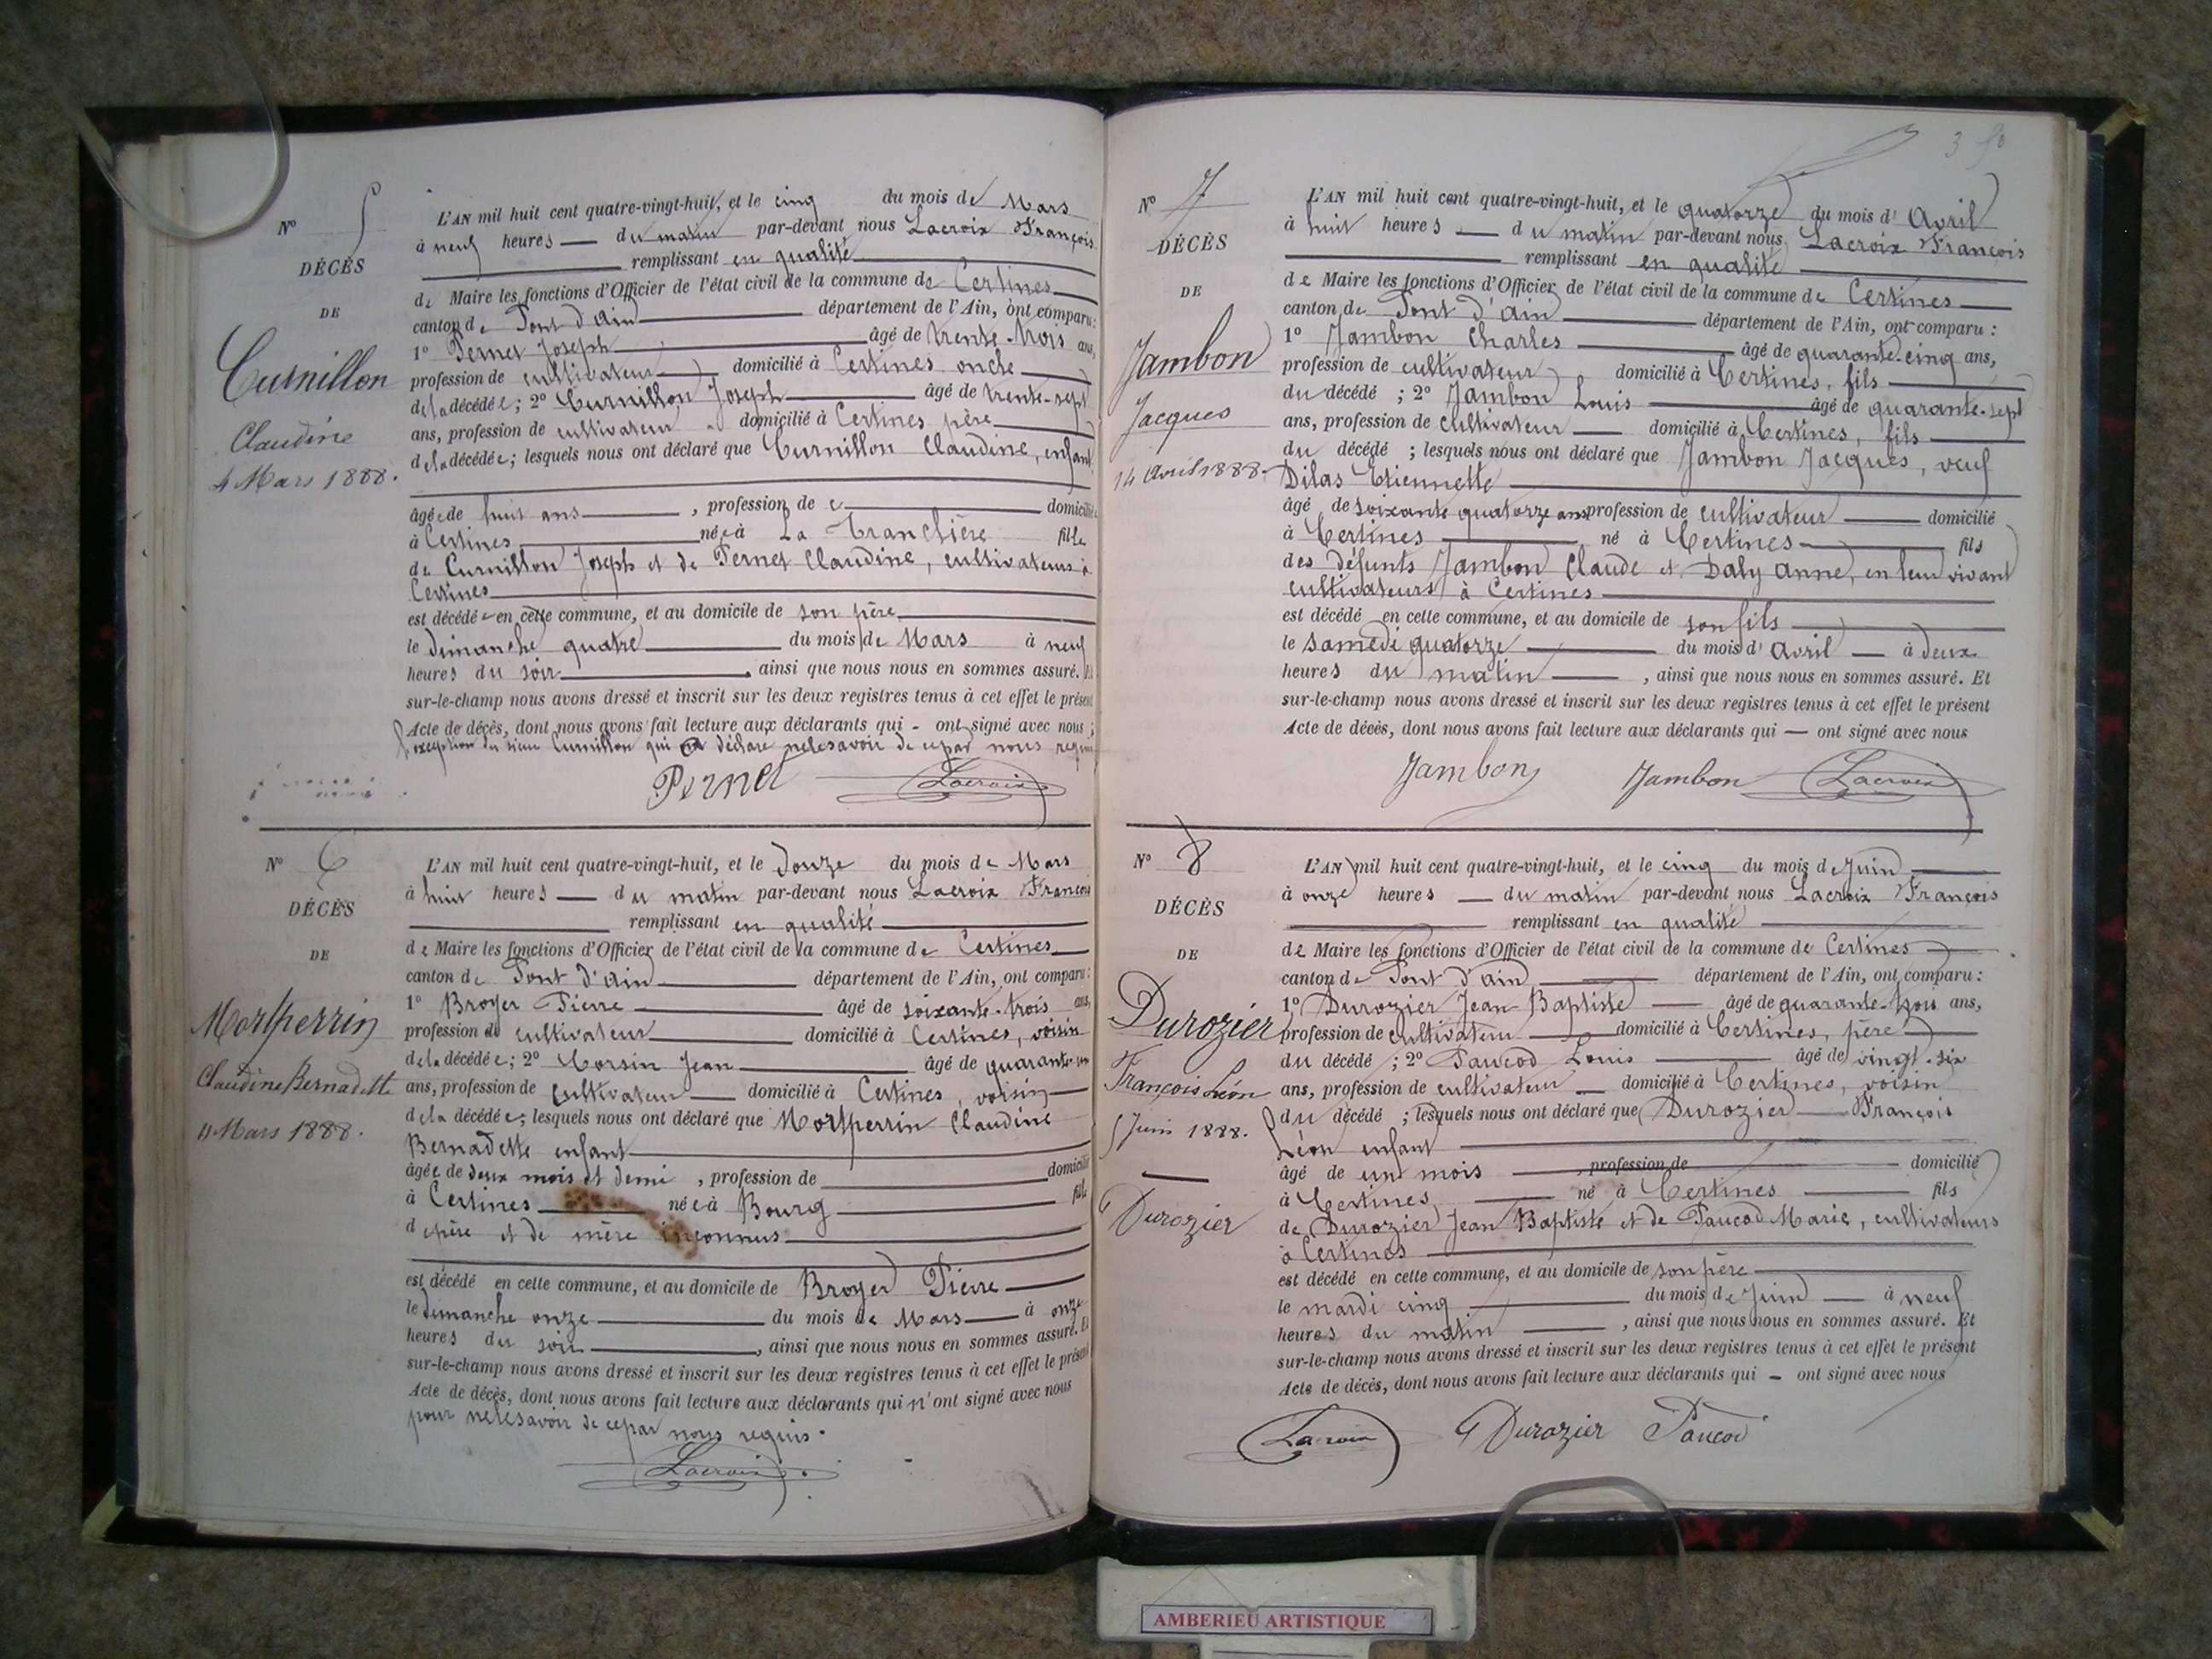 N° 5
DÉCÈS
DE
Curnillon
Claudine
4 Mars 1888.
L'AN mil huit cent quatre-vingt-huit, et le cinq du mois de Mars
à neuf heures — du matin par-devant nous Lacroix François
remplissant en qualité
de Maire les fonctions d'Officier de l'état civil de la commune de Certines
canton de Pont d'Ain département de l'Ain, ont comparu:
1° Pernet Joseph âgé de trente-trois ans,
profession de cultivateur domicilié à Certines oncle
de la décédée; 2° Curnillon Joseph âgé de trente-sept
ans, profession de cultivateur domicilié à Certines père
de la décédée; lesquels nous ont déclaré que Curnillon Claudine, enfant
âgée de huit ans, profession de domicilié
à Certines née à La Tranclière fille
de Curnillon Joseph et de Pernet Claudine, cultivateurs à
Certines
est décédée en cette commune, et au domicile de son père
le dimanche quatre du mois de Mars à neuf
heures du soir, ainsi que nous nous en sommes assuré. Et
sur-le-champ nous avons dressé et inscrit sur les deux registres tenus à cet effet le présent
Acte de décès, dont nous avons fait lecture aux déclarants qui - ont signé avec nous
exception du sieur Curnillon qui a déclaré ne le savoir de ce par nous requis
Pernet Lacroix
N° 6
DÉCÈS
DE
Mortperrin
Claudine Bernadette
11 Mars 1888.
L'AN mil huit cent quatre-vingt-huit, et le douze du mois de Mars
à huit heures — du matin par-devant nous Lacroix François
remplissant en qualité
de Maire les fonctions d'Officier de l'état civil de la commune de Certines
canton de Pont d'Ain département de l'Ain, ont comparu:
1° Broyer Pierre âgé de soixante-trois ans,
profession de cultivateur domicilié à Certines, voisin
de la décédée; 2° Corsin Jean âgé de quarante-un
ans, profession de cultivateur domicilié à Certines, voisin
de la décédée; lesquels nous ont déclaré que Mortperrin Claudine
Bernadette enfant
âgée de deux mois et demi, profession de domicilié
à Certines née à Bourg fille
de père et de mère inconnus
est décédé en cette commune, et au domicile de Broyer Pierre
le dimanche onze du mois de Mars à onze
heures du soir, ainsi que nous nous en sommes assuré. Et
sur-le-champ nous avons dressé et inscrit sur les deux registres tenus à cet effet le présent
Acte de décès, dont nous avons fait lecture aux déclarants qui n'ont signé avec nous
pour ne le savoir de ce par nous requis.
Lacroix
3
N° 7
DÉCÈS
DE
Jambon
Jacques
14 Avril 1888.
L'AN mil huit cent quatre-vingt-huit, et le quatorze du mois d'Avril
à huit heures — du matin par-devant nous Lacroix François
remplissant en qualité
de Maire les fonctions d'Officier de l'état civil de la commune de Certines
canton de Pont d'Ain département de l'Ain, ont comparu :
1° Jambon Charles âgé de quarante-cinq ans,
profession de cultivateur domicilié à Certines, fils
du décédé ; 2° Jambon Louis âgé de quarante-sept
ans, profession de cultivateur domicilié à Certines, fils
du décédé ; lesquels nous ont déclaré que Jambon Jacques, veuf
Dilas Etiennette
âgé de soixante quatorze ans profession de cultivateur domicilié
à Certines né à Certines fils
des défunts Jambon Claude et Daly Anne, en leur vivant
cultivateurs à Certines
est décédé en cette commune, et au domicile de son fils
le samedi quatorze du mois d'Avril — à deux
heures du matin, ainsi que nous nous en sommes assuré. Et
sur-le-champ nous avons dressé et inscrit sur les deux registres tenus à cet effet le présent
Acte de décès, dont nous avons fait lecture aux déclarants qui — ont signé avec nous
Jambon Jambon Lacroix
N° 8
DÉCÈS
DE
Durozier
François Léon
5 Juin 1888.
Durozier
L'AN mil huit cent quatre-vingt-huit, et le cinq du mois de Juin
à onze heures — du matin par-devant nous Lacroix François
remplissant en qualité
de Maire les fonctions d'Officier de l'état civil de la commune de Certines
canton de Pont d'Ain département de l'Ain, ont comparu :
1° Durozier Jean-Baptiste âgé de quarante-trois ans,
profession de cultivateur domicilié à Certines, père
du décédé ; 2° Paucod Louis âgé de vingt-six
ans, profession de cultivateur domicilié à Certines, voisin
du décédé ; lesquels nous ont déclaré que Durozier François
Léon enfant
âgé de un mois profession de domicilié
à Certines né à Certines fils
de Durozier Jean Baptiste et de Paucod Marie, cultivateurs
à Certines
est décédé en cette commune, et au domicile de son père
le mardi cinq du mois de Juin — à neuf
heures du matin, ainsi que nous nous en sommes assuré. Et
sur-le-champ nous avons dressé et inscrit sur les deux registres tenus à cet effet le présent
Acte de décès, dont nous avons fait lecture aux déclarants qui - ont signé avec nous
Lacroix Durozier Paucod
AMBERIEU ARTISTIQUE